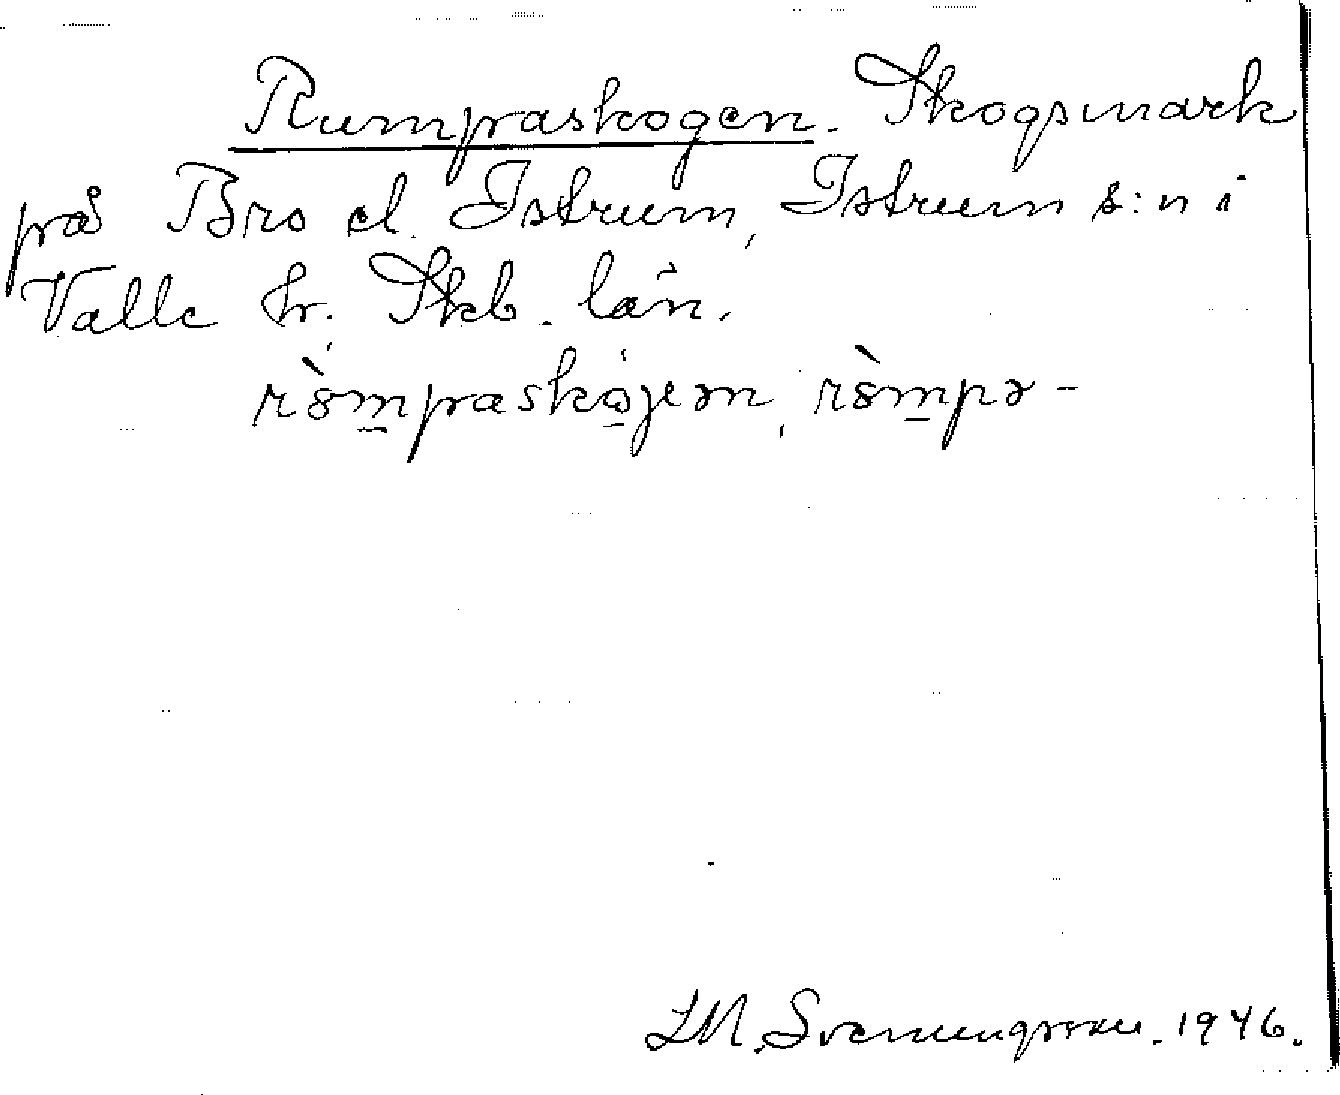 Rumpaskogen. Skogsmark
på Bro el. Istrum, Istrum s:n i
Valle hr. Skb. län.
rò̈mpaskò̱jen, ròmpə-
LM. Svenungsson. 1946.